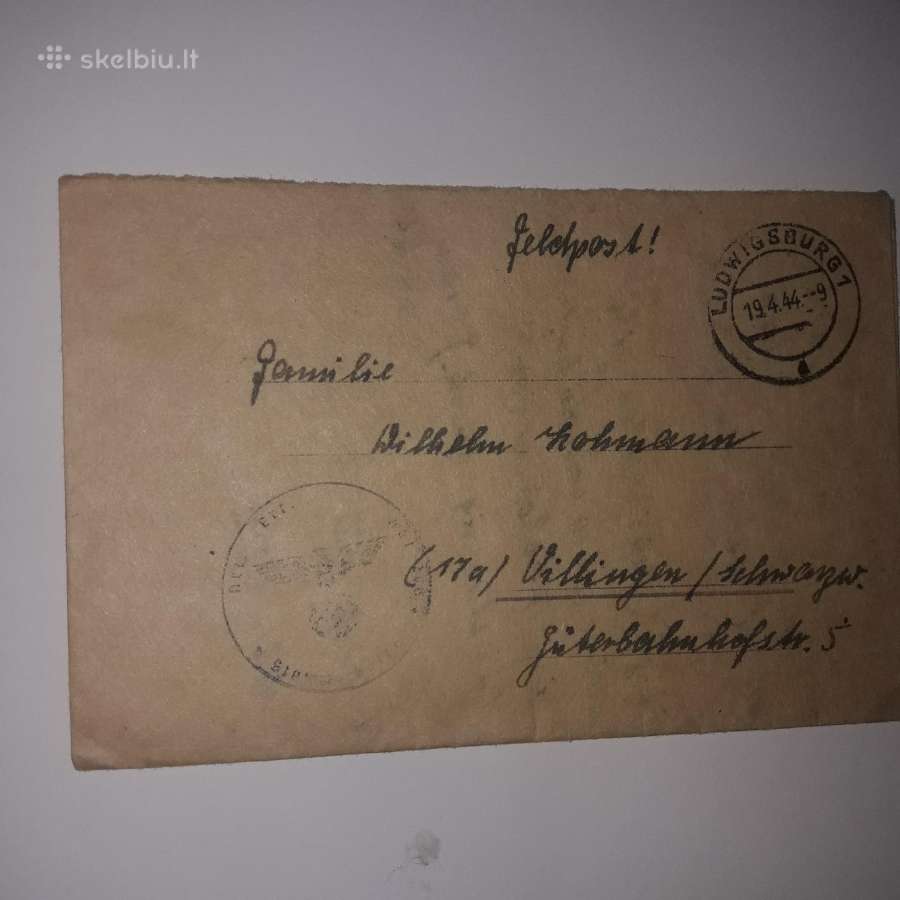 skelbiu.lt
Feldpost!
LUDWIGSBURG 1
19.4.44.--9
a
Familie
Wilhelm Lohmann
(17a) Villingen / Schwarzw.
Güterbahnhofstr. 5